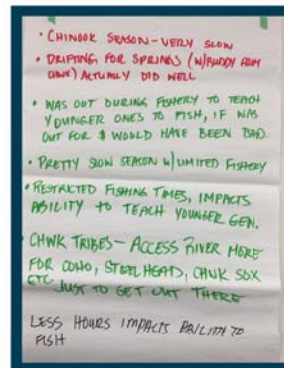 • CHINOOK SEASON - VERY SLOW
• DRIFTING FOR SPRINGS (W/BUDDY FROM
ACTUALLY DID WELL
• WAS OUT DURING FISHERY TO TEACH
YOUNGER ONES TO FISH, IF WAS
OUT FOR $ WOULD HAVE BEEN BAD.
• PRETTY SLOW SEASON W/LIMITED FISHERY
• RESTRICTED FISHING TIMES, IMPACTS
ABILITY TO TEACH YOUNGER GEN.
• CHWK TRIBES - ACCESS RIVER MORE
FOR COHO, STEELHEAD, CHWK SOX
ETC JUST TO GET OUT THERE
LESS HOURS IMPACTS ABILITY TO
FISH